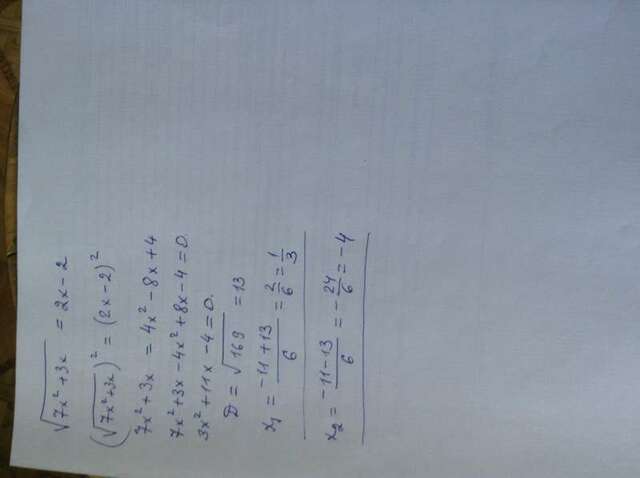 √(7x² + 3x) = 2x - 2
(√(7x² + 3x))² = (2x - 2)²
7x² + 3x = 4x² - 8x + 4
7x² + 3x - 4x² + 8x - 4 = 0
3x² + 11x - 4 = 0.
D = √169 = 13
x₁ = (-11 + 13)/6 = 2/6 = 1/3
x₂ = (-11 - 13)/6 = -24/6 = -4